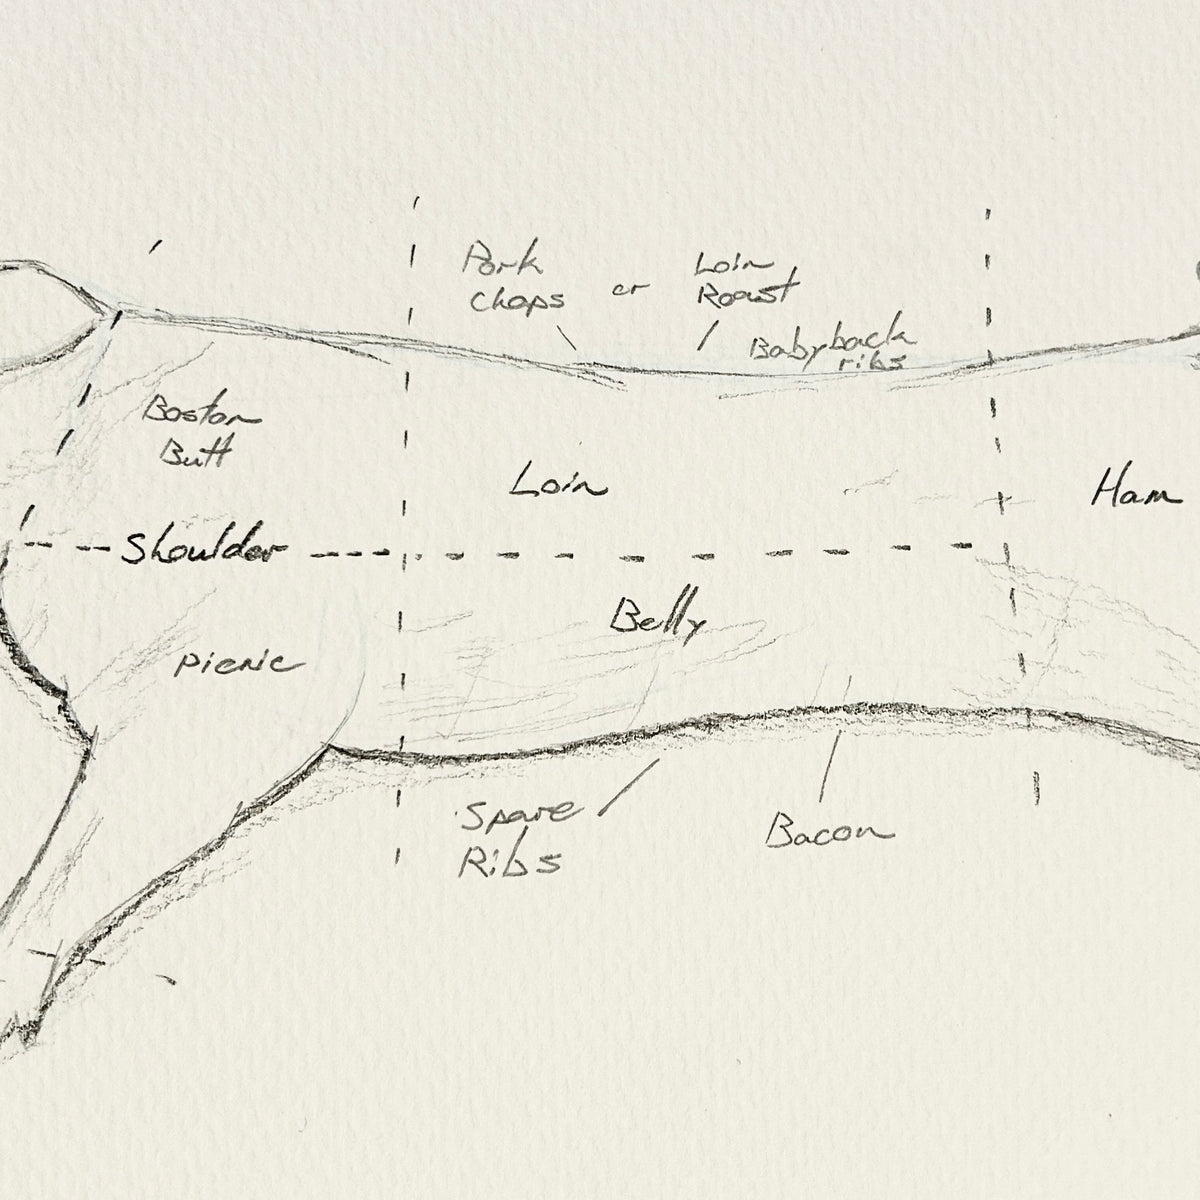 Pork
Chops
or
Loin
Roast
Babyback
ribs
Boston
Butt
Loin
Ham
Shoulder
Belly
Picnic
Spare
Ribs
Bacon